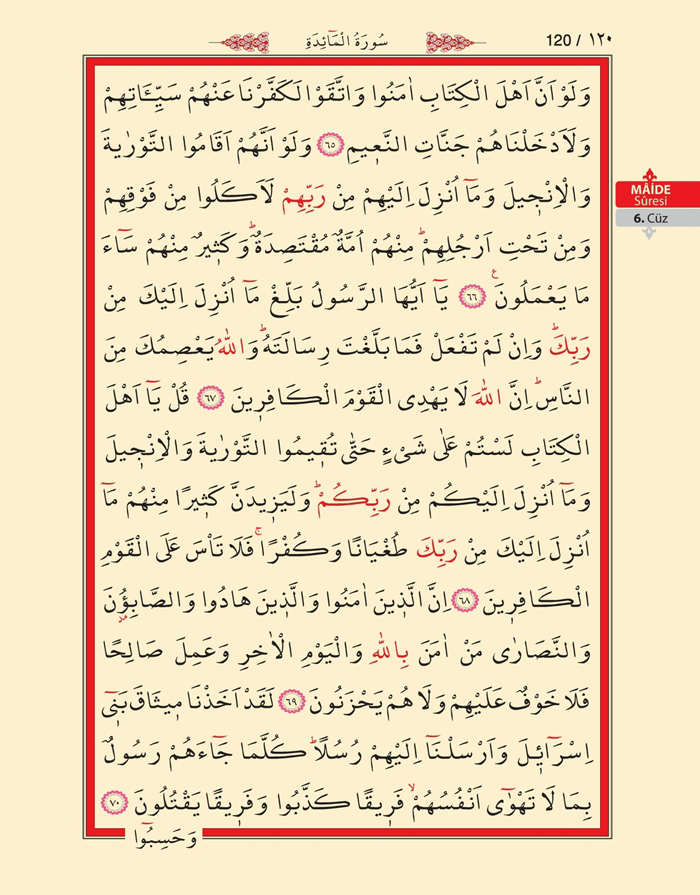 120 / ١٢٠
سُورَةُ الْمَٓائِدَةِ
وَلَوْ اَنَّ اَهْلَ الْكِتَابِ اٰمَنُوا وَاتَّقَوْا لَكَفَّرْنَا عَنْهُمْ سَيِّـَٔاتِهِمْ
وَلَاَدْخَلْنَاهُمْ جَنَّاتِ النَّع۪يمِ ﴿٦٥﴾ وَلَوْ اَنَّهُمْ اَقَامُوا التَّوْرٰيةَ
وَالْاِنْج۪يلَ وَمَٓا اُنْزِلَ اِلَيْهِمْ مِنْ رَبِّهِمْ لَاَكَلُوا مِنْ فَوْقِهِمْ
وَمِنْ تَحْتِ اَرْجُلِهِمْۜ مِنْهُمْ اُمَّةٌ مُقْتَصِدَةٌۜ وَكَث۪يرٌ مِنْهُمْ سَٓاءَ
مَا يَعْمَلُونَ۟ ﴿٦٦﴾ يَٓا اَيُّهَا الرَّسُولُ بَلِّغْ مَٓا اُنْزِلَ اِلَيْكَ مِنْ
رَبِّكَۜ وَاِنْ لَمْ تَفْعَلْ فَمَا بَلَّغْتَ رِسَالَتَهُۜ وَاللّٰهُ يَعْصِمُكَ مِنَ
النَّاسِۜ اِنَّ اللّٰهَ لَا يَهْدِي الْقَوْمَ الْكَافِر۪ينَ ﴿٦٧﴾ قُلْ يَٓا اَهْلَ
الْكِتَابِ لَسْتُمْ عَلٰى شَيْءٍ حَتّٰى تُق۪يمُوا التَّوْرٰيةَ وَالْاِنْج۪يلَ
وَمَٓا اُنْزِلَ اِلَيْكُمْ مِنْ رَبِّكُمْۜ وَلَيَز۪يدَنَّ كَث۪يرًا مِنْهُمْ مَٓا
اُنْزِلَ اِلَيْكَ مِنْ رَبِّكَ طُغْيَانًا وَكُفْرًاۚ فَلَا تَأْسَ عَلَى الْقَوْمِ
الْكَافِر۪ينَ ﴿٦٨﴾ اِنَّ الَّذ۪ينَ اٰمَنُوا وَالَّذ۪ينَ هَادُوا وَالصَّابِؤُ۫نَ
وَالنَّصَارٰى مَنْ اٰمَنَ بِاللّٰهِ وَالْيَوْمِ الْاٰخِرِ وَعَمِلَ صَالِحًا
فَلَا خَوْفٌ عَلَيْهِمْ وَلَا هُمْ يَحْزَنُونَ ﴿٦٩﴾ لَقَدْ اَخَذْنَا م۪يثَاقَ بَن۪ٓي
اِسْرَٓاء۪يلَ وَاَرْسَلْنَٓا اِلَيْهِمْ رُسُلًاۜ كُلَّمَا جَٓاءَهُمْ رَسُولٌ
بِمَا لَا تَهْوٰٓى اَنْفُسُهُمْۙ فَر۪يقًا كَذَّبُوا وَفَر۪يقًا يَقْتُلُونَ ﴿٧٠﴾
وَحَسِبُٓوا
MÂİDE
Sûresi
6. Cüz